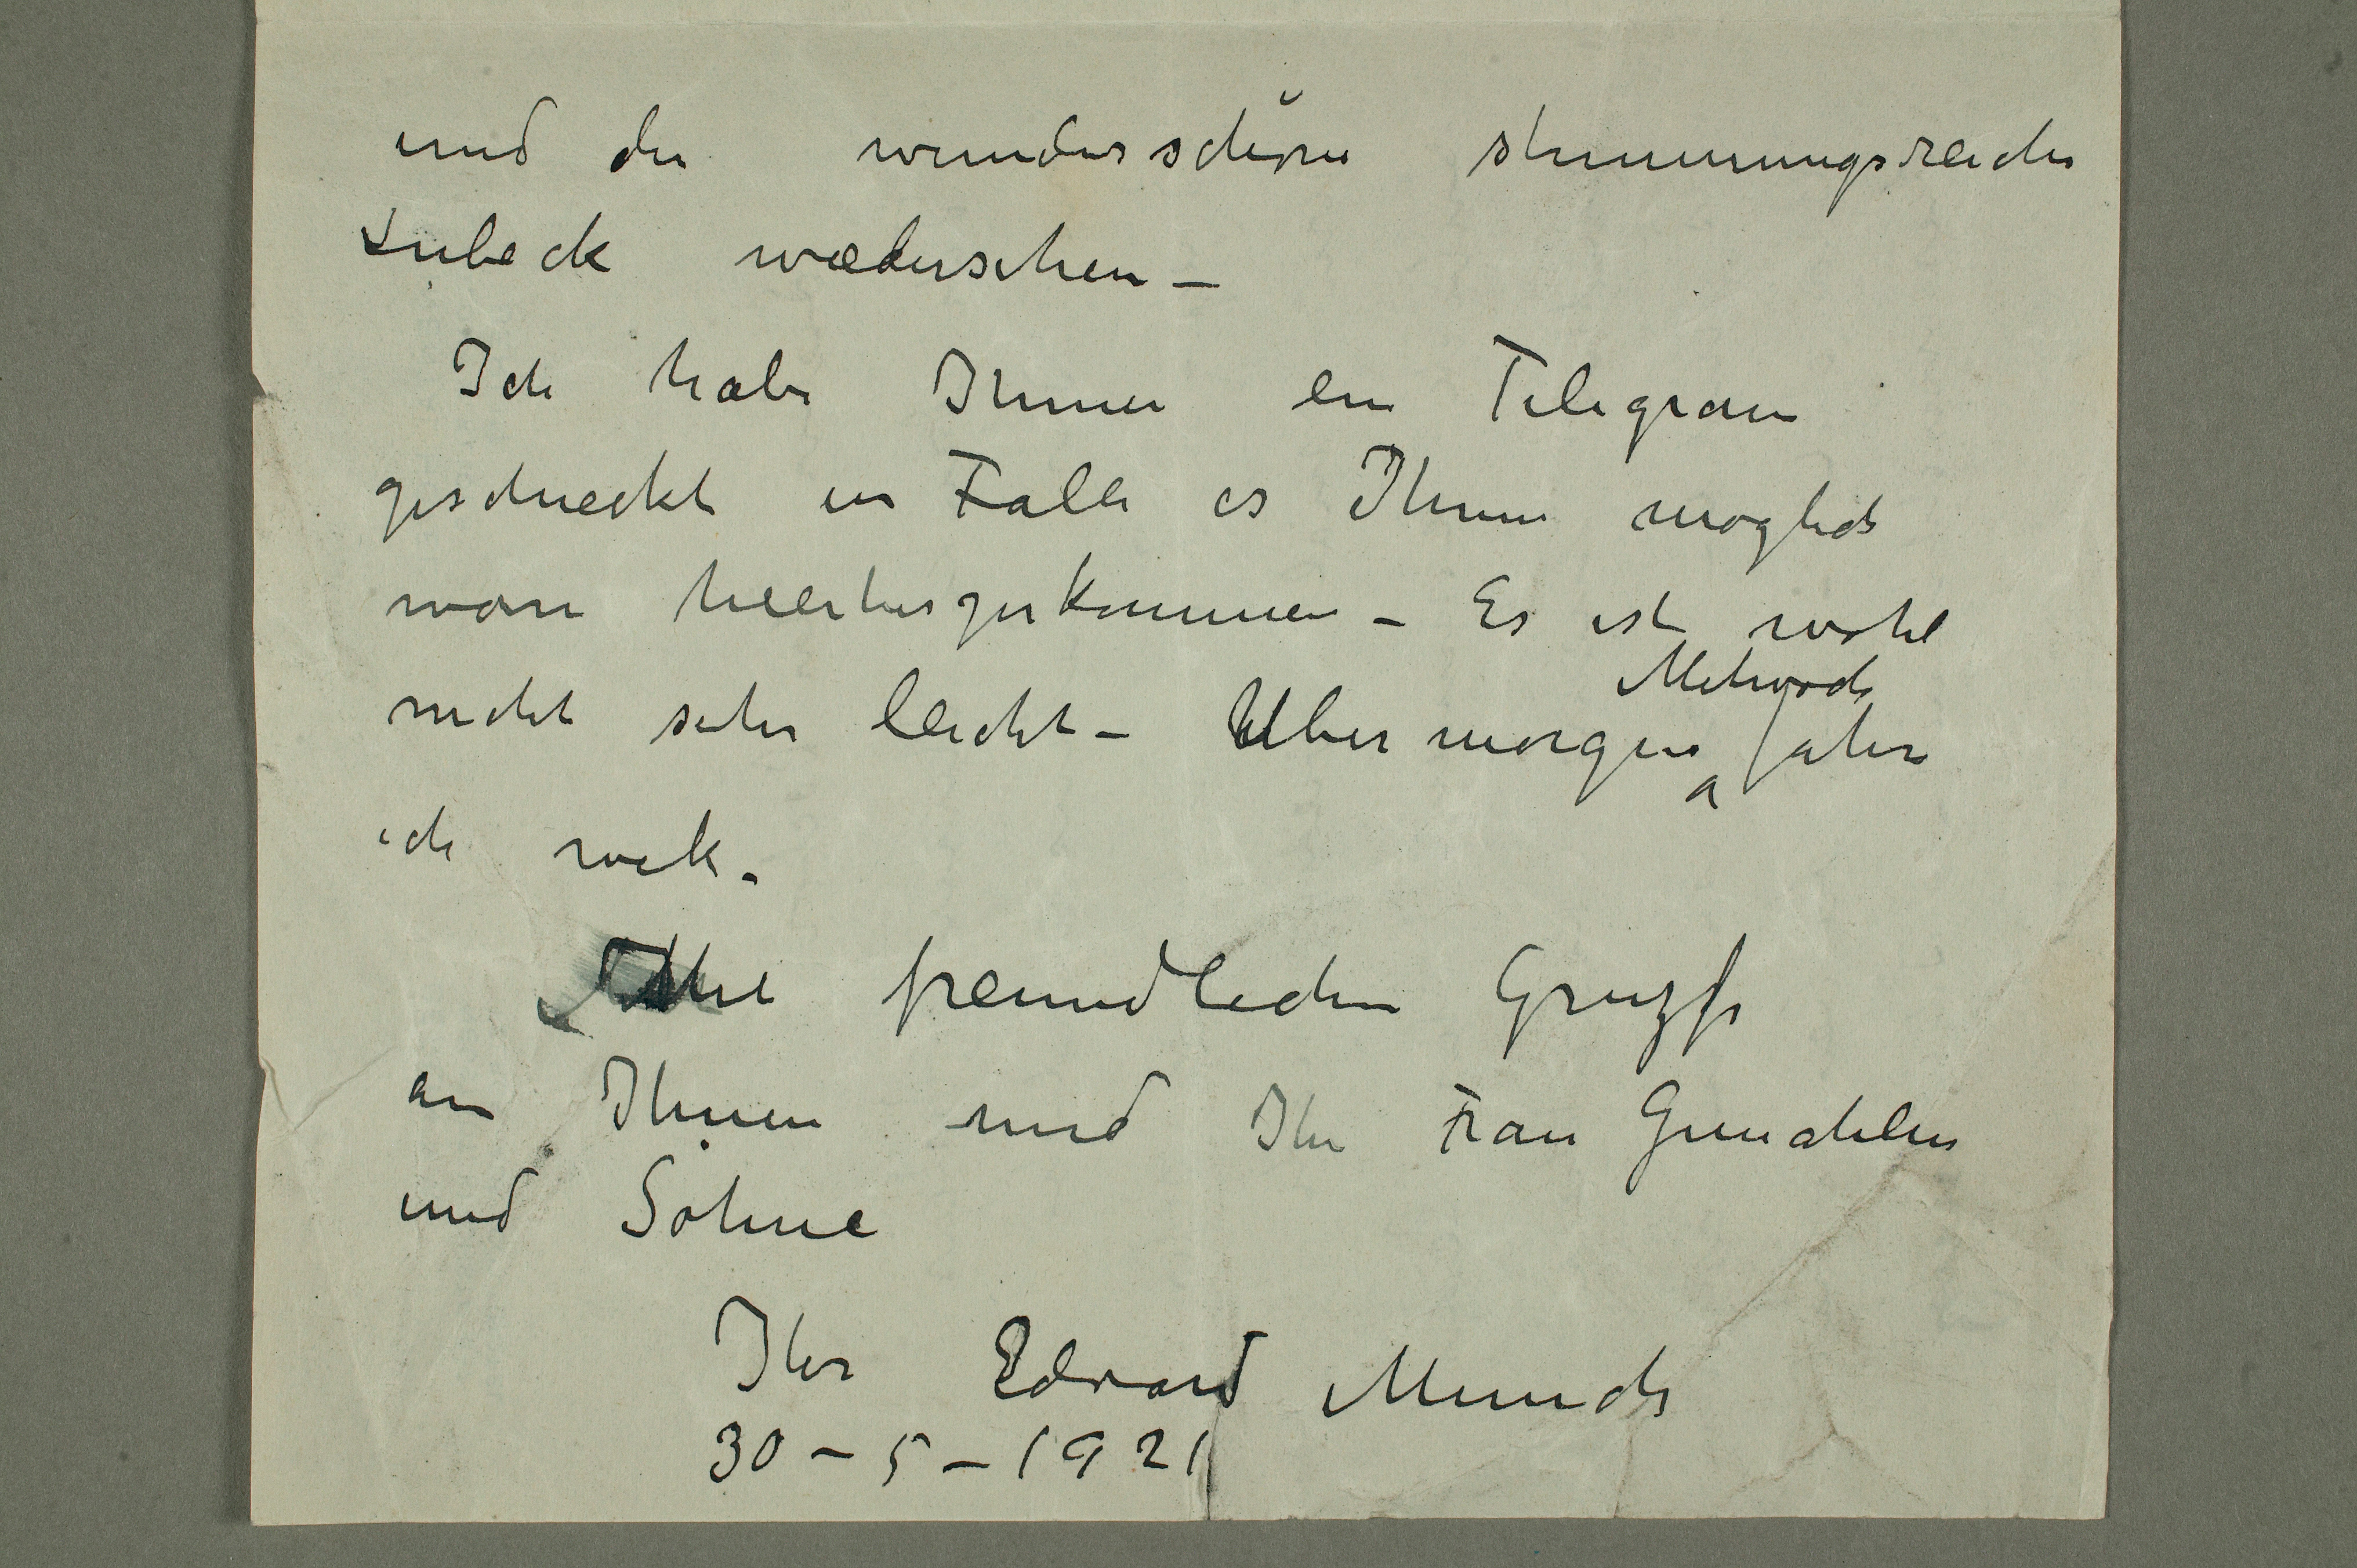 und die wunderschöne stimmungsreiche
Lubeck wiedersehen –
Ich habe Ihnen ein Telegram
geschieckt im Falle es Ihnen moglich
ware hierherzukommen – Es ist wohl
nicht sehr leicht – Ubermorgen Mitwoch fahre
ich wek.
Mit freundlichen Gruzße
an Ihnen und Ihr Frau Gemahlin
und Söhne
Ihr Edvard Munch
30 – 5 – 1921